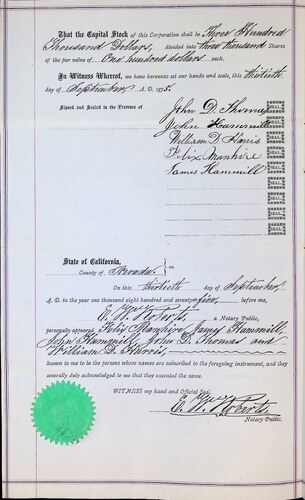 That the Capital Stock of this Corporation shall be Three Hundred
Thousand Dollars, divided into three thousand Shares
of the par value of One hundred dollars each.
In Witness Whereof, we have hereunto set our hands and seals, this thirtieth
day of September A.D. 1875.
Signed and Sealed in the Presence of
John D. Thomas SEAL
John Hammill SEAL
William D. Harris SEAL
Felix Manhire SEAL
James Hammill SEAL
SEAL
SEAL
SEAL
SEAL
SEAL
State of California,
County of Nevada ss.
On this thirtieth day of September
A.D. in the year one thousand eight hundred and seventy five, before me,
E. W. Roberts, a Notary Public,
personally appeared Felix Manhire, James Hammill,
John Hammill, John D. Thomas and
William D. Harris,
known to me to be the persons whose names are subscribed to the foregoing instrument, and they
severally duly acknowledged to me that they executed the same.
WITNESS my hand and Official Seal.
E. W. Roberts
Notary Public.